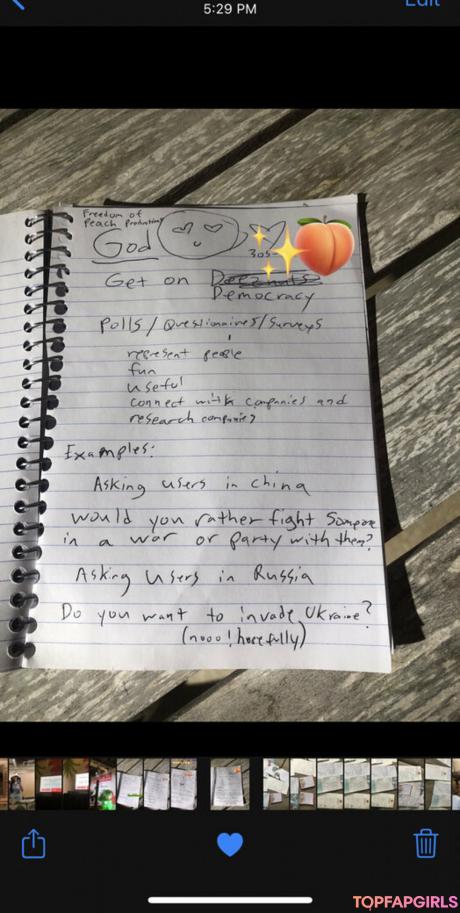 5:29 PM
Edit
Freedom of
Peach Productions
God
305
Get on Deeznuts
Democracy
Polls / Questionaires / Surveys
represent people
fun
useful
connect with companies and
research companies
Examples:
Asking users in china
would you rather fight someone
in a war or party with them?
Asking users in Russia
Do you want to invade Ukraine?
(nooo! hopefully)
TOPFAPGIRLS